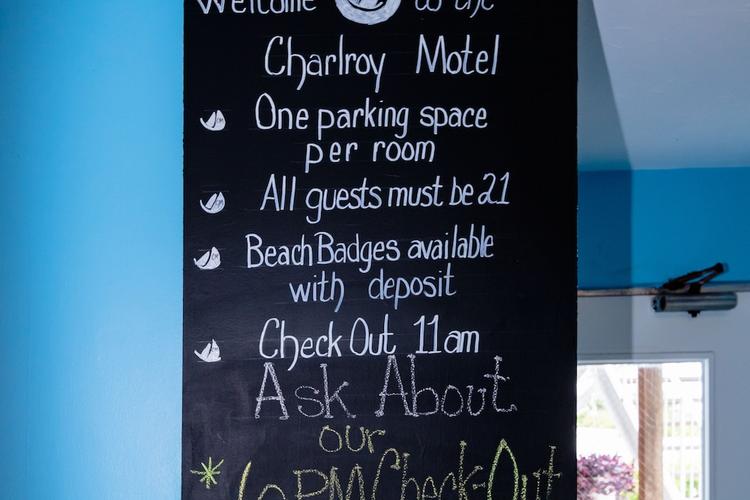 Welcome to the
Charlroy Motel
One parking space
per room
All guests must be 21
Beach Badges available
with deposit
Check Out 11am
Ask About
our
*6PM Check-Out